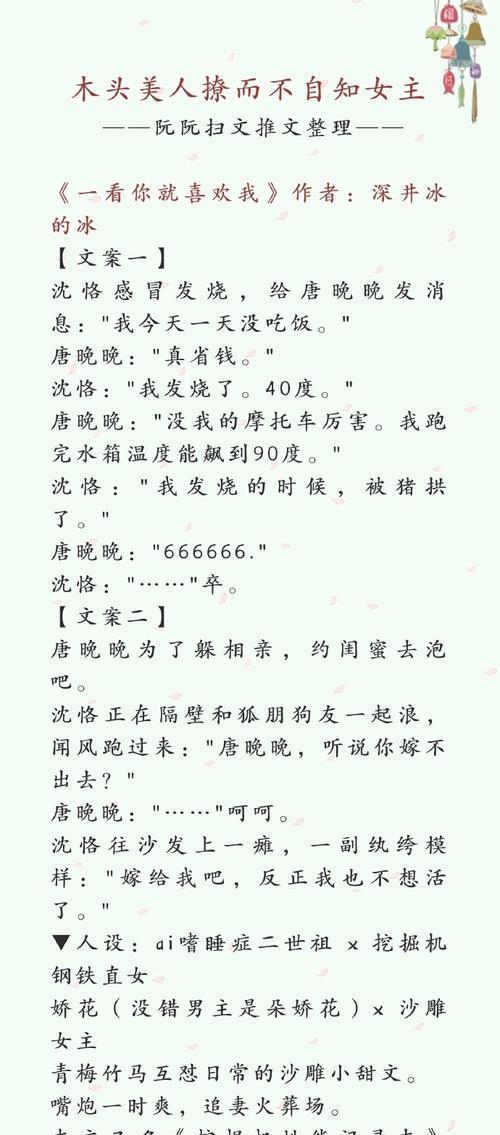 木头美人撩而不自知女主
——阮阮扫文推文整理——
《一看你就喜欢我》作者：深井冰
的冰
【文案一】
沈恪感冒发烧，给唐晚晚发消
息："我今天一天没吃饭。"
唐晚晚："真省钱。"
沈恪："我发烧了。40度。"
唐晚晚："没我的摩托车厉害。我跑
完水箱温度能飙到90度。"
沈恪："我发烧的时候，被猪拱
了。"
唐晚晚："666666."
沈恪："……"卒。
【文案二】
唐晚晚为了躲相亲，约闺蜜去泡
吧。
沈恪正在隔壁和狐朋狗友一起浪，
闻风跑过来："唐晚晚，听说你嫁不
出去？"
唐晚晚："……"呵呵。
沈恪往沙发上一瘫，一副纨绔模
样："嫁给我吧，反正我也不想活
了。"
▼人设：ai嗜睡症二世祖 x 挖掘机
钢铁直女
娇花（没错男主是朵娇花）x 沙雕
女主
青梅竹马互怼日常的沙雕小甜文。
嘴炮一时爽，追妻火葬场。